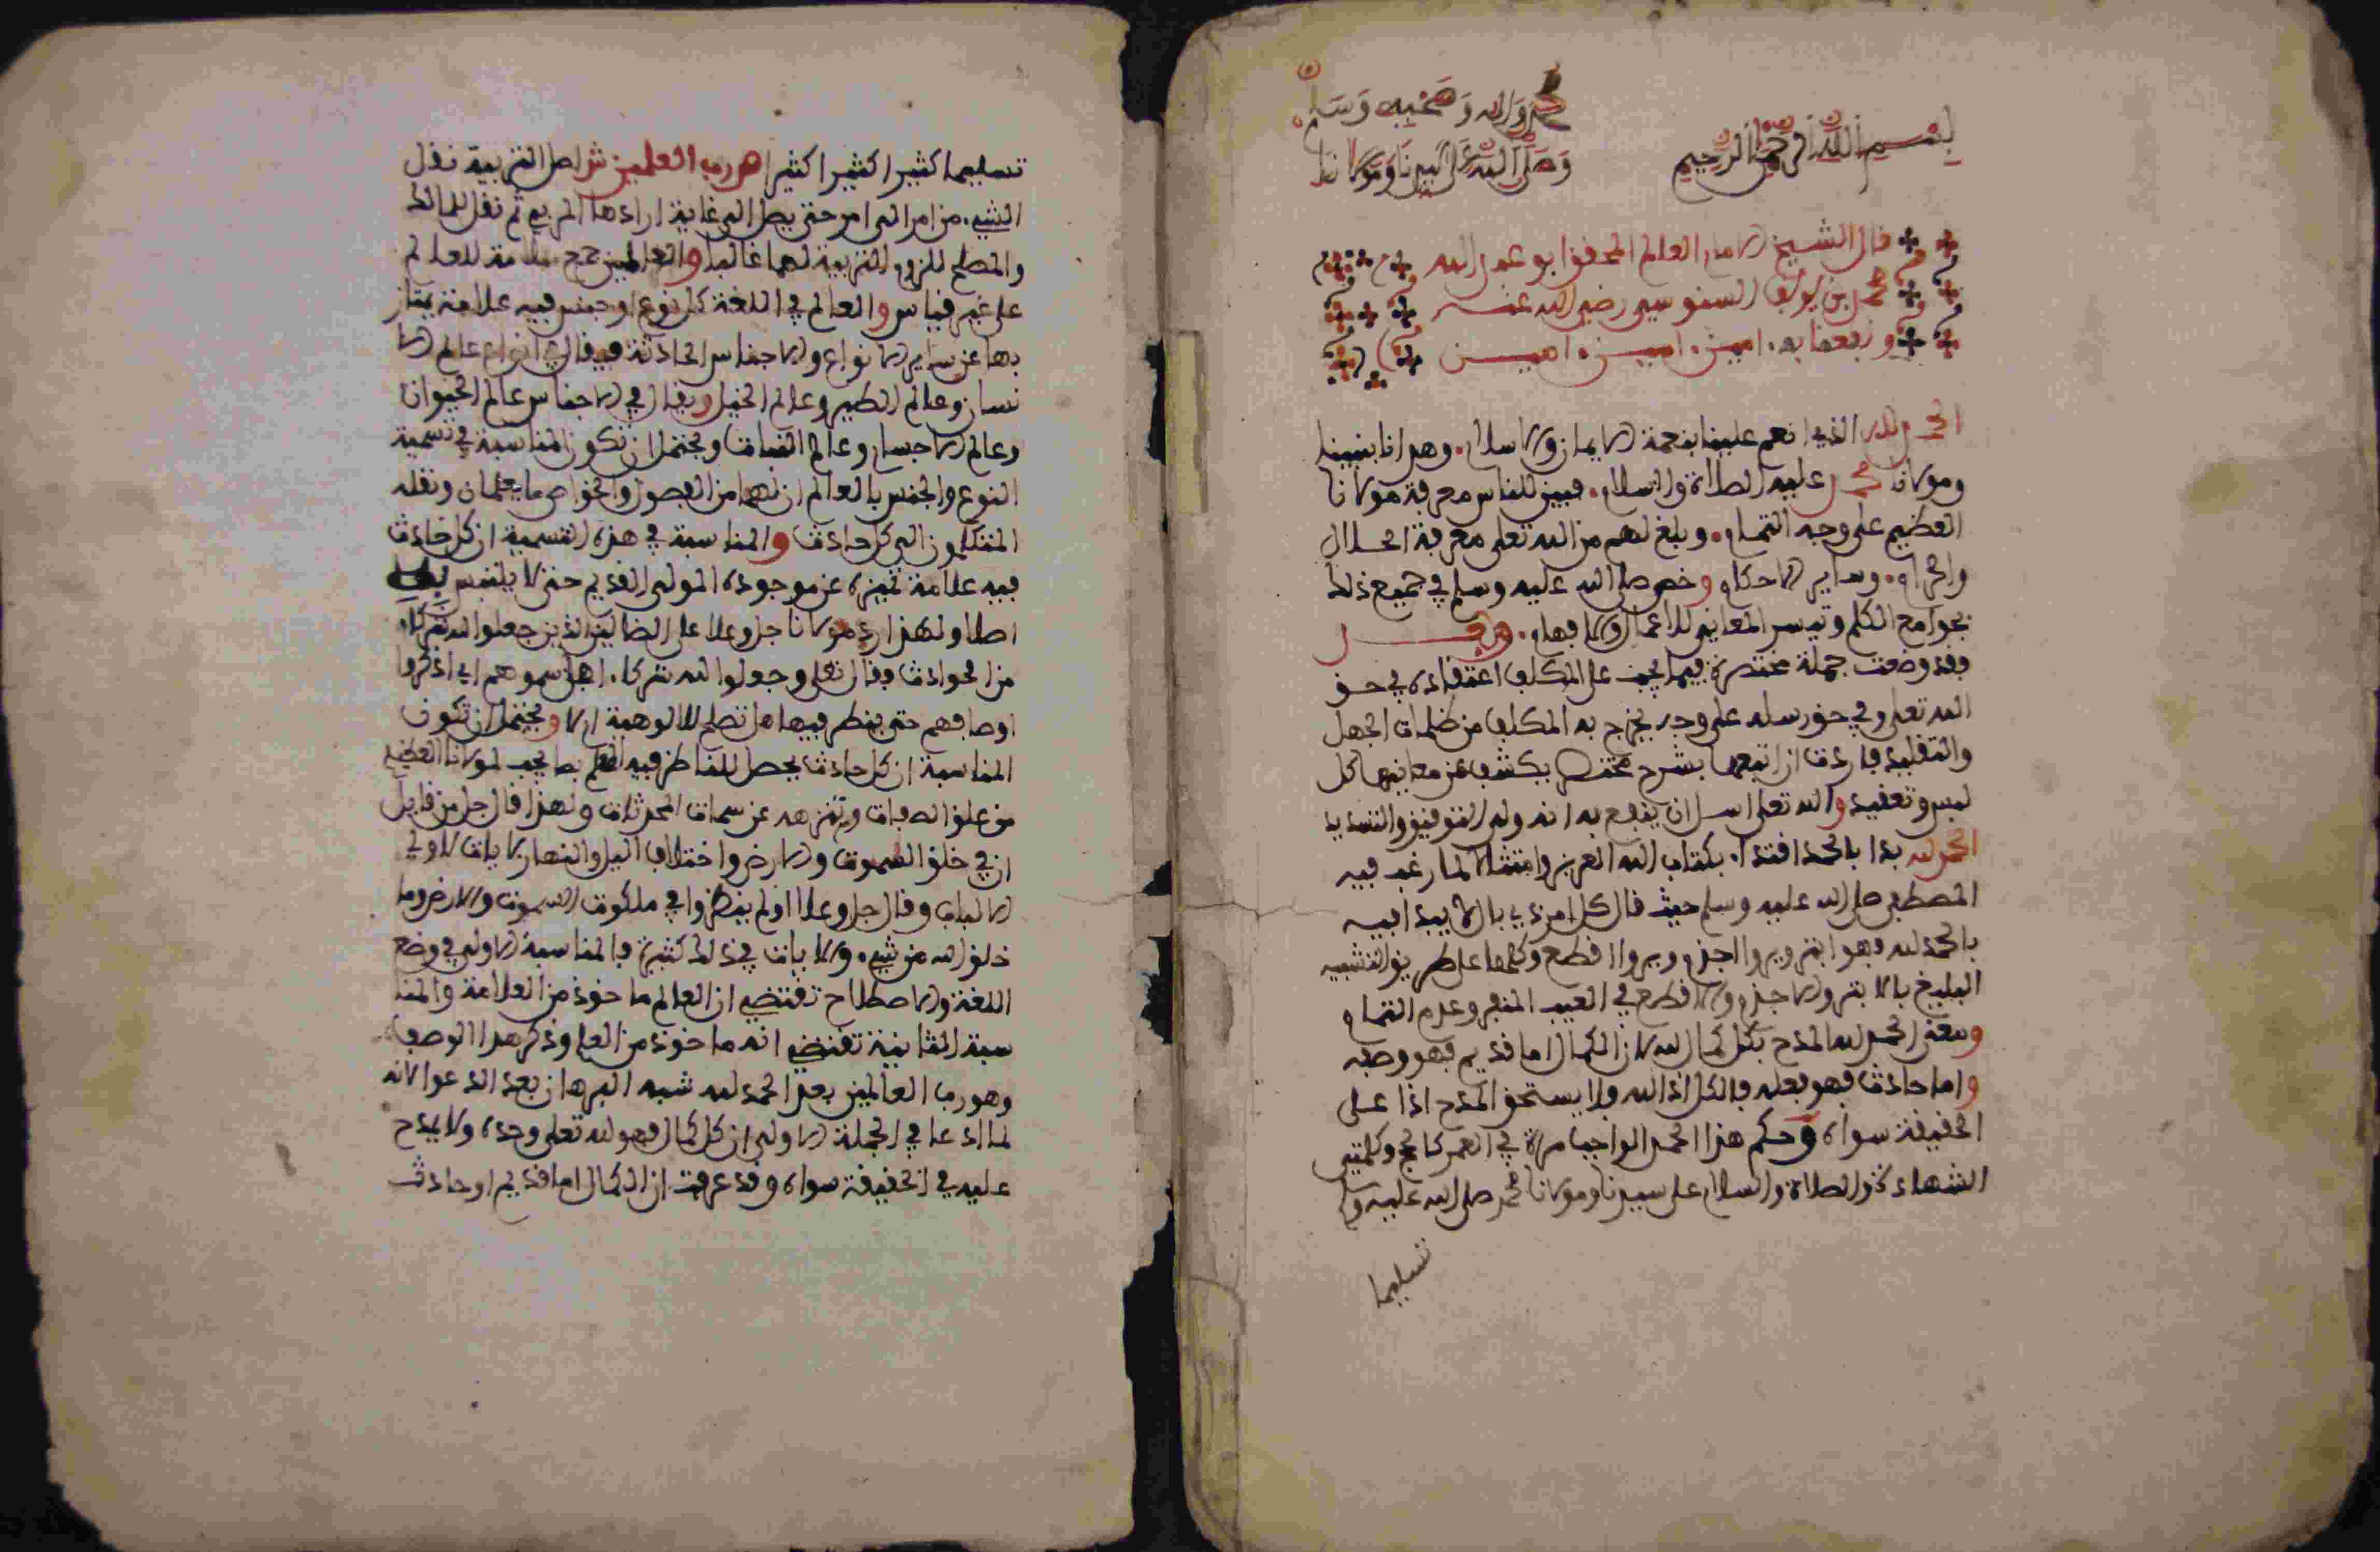 بسم الله الرحمن الرحيم
وصلى الله على سيدنا ومولانا
محمد وءاله وصحبه وسلم
قال الشيخ الامام العالم المحقق ابو عبد الله
محمد بن يوسف السنوسي رضي الله عنه
ونفعنا به امين امين امين
الحمد لله الذي انعم علينا بنعمة الايمان والاسلام وهدانا بنبينا
ومولانا محمد عليه الصلاة والسلام فبين للناس معرفة مولانا
العظيم على وجه التمام وبلغ لهم من الله تعلى معرفة الحلال
والحرام وساير الاحكام وخص صلى الله عليه وسلم في جميع ذلك
بجوامع الكلم وتيسر المعاني للاعمال والافهام وبعد
فقد وضعت جملة مختصرة فيما يجب على المكلف اعتقاده في حق
الله تعلى وفي حق رسله على وجه يخرج به المكلف من ظلمات الجهل
والتقليد فاردت ان اتبعها بشرح مختصر يكشف عن معانيها كل
لبس وتعقيد والله تعلى اسل ان ينفع به انه ولي التوفيق والتسديد
الحمد لله بدا بالحمد اقتداء بكتاب الله العزيز وامتثالا لما رغب فيه
المصطفى صلى الله عليه وسلم حيث قال كل امر ذي بال لا يبدا فيه
بالحمد لله فهو ابتر ويروا اجذم ويروا اقطع وكلها على طريق التشبيه
البليغ بالابتر والاجذم والاقطع في العيب المنفر وعدم التمام
ومعنى الحمد لله المدح بكل كمال لله لان الكمال اما قديم فهو وصفه
واما حادث فهو فعله فالكل اذا لله ولا يستحق المدح اذا على
الحقيقة سواه وحكم هذا الحمد الواجب مرة في العمر كالحج وكلمتي
الشهادة والصلاة والسلام على سيدنا ومولانا محمد صلى الله عليه وسلم
تسليما
تسليما كثيرا كثيرا كثيرا رب العلمين اصل التربية نقل
الشيء من امر الى امر حتى يصل الى غاية ارادها المربي ثم نقل للمالك
والمصلح للزوم التربية لهما غالبا والعالمين جمع سلامة للعالم
على غير قياس والعالم في اللغة كل نوع او جنس فيه علامة يمتاز
بها عن ساير الانواع والاجناس الحادثة فيقال في الانواع عالم الا
نسان وعالم الطير وعالم الخيل ويقال في الاجناس عالم الحيوان
وعالم الاجسام وعالم النبات ويحتمل ان تكون المناسبة في تسمية
النوع والجنس بالعالم ان لهما من الفصول والخواص ما يعلمان ونقله
المتكلمون الى كل حادث والمناسبة في هذه التسمية ان كل حادث
فيه علامة تميزه عن موجوده المولى القديم حتى لا يلتبس
اصلا ولهذا رد مولانا جل وعلا على الضالين الذين جعلوا لله شركاء
من الحوادث فقال تعلى وجعلوا لله شركاء قل سموهم اي اذكروا
اوصافهم حتى ينظر فيها هل تصلح للالوهية ام لا ويحتمل ان تكون
المناسبة ان كل حادث يحصل للناظر فيه العلم بما يجب لمولانا العظيم
من علو الصفات وتنزهه عن سمات المحدثات ولهذا قال جل من قايل
ان في خلق السموات والارض واختلاف اليل والنهار لايات لاولي
الالباب وقال جل وعلا اولم ينظروا في ملكوت السموات والارض وما
خلق الله من شيء والايات في ذلك كثيرة فالمناسبة الاولى في وضع
اللغة والاصطلاح تقتضي ان العالم ماخوذ من العلامة والمنا
سبة الثانية تقتضي انه ماخوذ من العلم وذكر هذا الوصف
وهو رب العالمين بعد الحمد لله شبه البرهان بعد الدعوا لانه
لما ادعا في الجملة الاولى ان كل كمال فهو لله تعلى وحده ولا يمدح
عليه في الحقيقة سواه وقد عرفت ان الكمال اما قديم او حادث